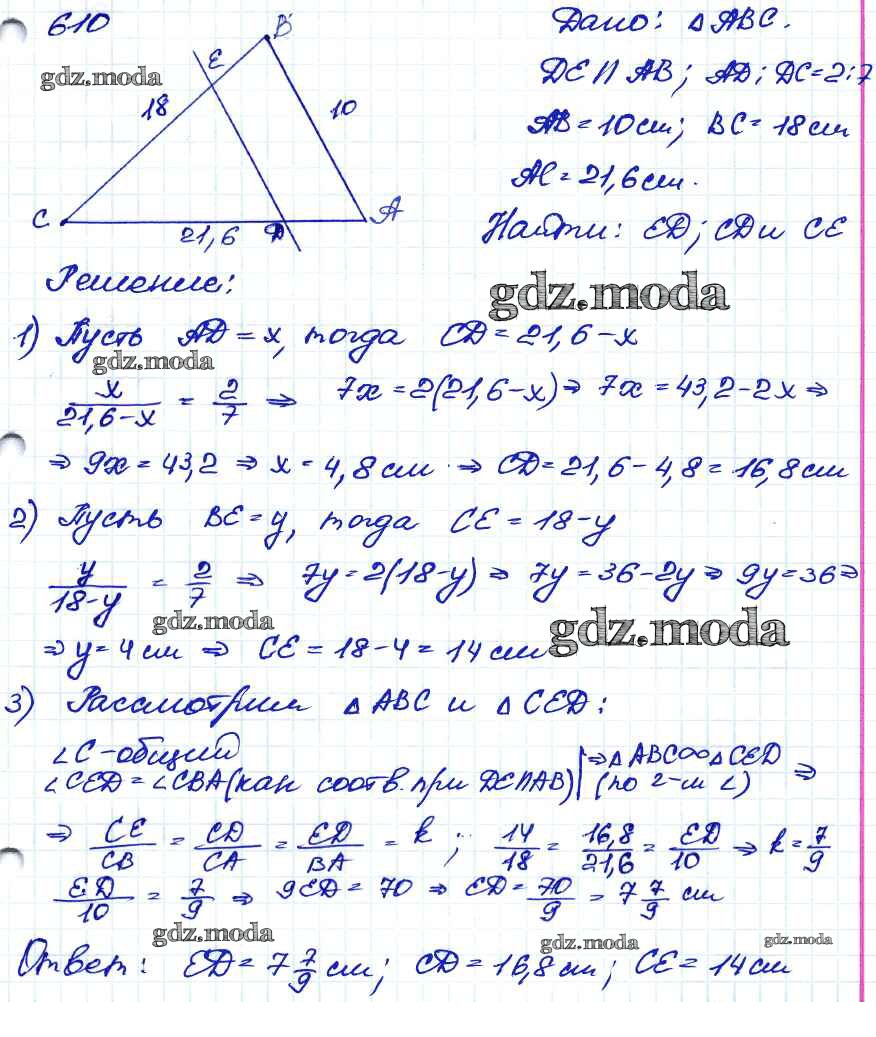 610
B
Дано: △ABC.
E
gdz.moda
DE ∩ AB; AD:DC=2:7
18
10
AB=10см; BC=18см
AC=21,6см.
C
A
21,6
D
Найти: ED; CD и CE
Решение:
gdz.moda
1) Пусть AD=x, тогда CD=21,6-x
gdz.moda
x/(21,6-x) = 2/7 ⇒ 7x=2(21,6-x) ⇒ 7x=43,2-2x ⇒
⇒ 9x=43,2 ⇒ x=4,8см ⇒ CD=21,6-4,8=16,8см
2) Пусть BE=y, тогда CE=18-y
y/(18-y) = 2/7 ⇒ 7y=2(18-y) ⇒ 7y=36-2y ⇒ 9y=36 ⇒
gdz.moda
gdz.moda
⇒ y=4см ⇒ CE=18-4=14см
3) Рассмотрим △ABC и △CED:
∠C-общий
⇒ △ABC∞△CED ⇒
∠CED=∠CBA (как соотв. при DE∩AB)
(по 2-м ∠)
⇒ CE/CB = CD/CA = ED/BA = k; 14/18 = 16,8/21,6 = ED/10 ⇒ k=7/9
ED/10 = 7/9 ⇒ 9ED=70 ⇒ ED=70/9=7 7/9 см
gdz.moda
gdz.moda
gdz.moda
Ответ: ED=7 7/9 см; CD=16,8см; CE=14см